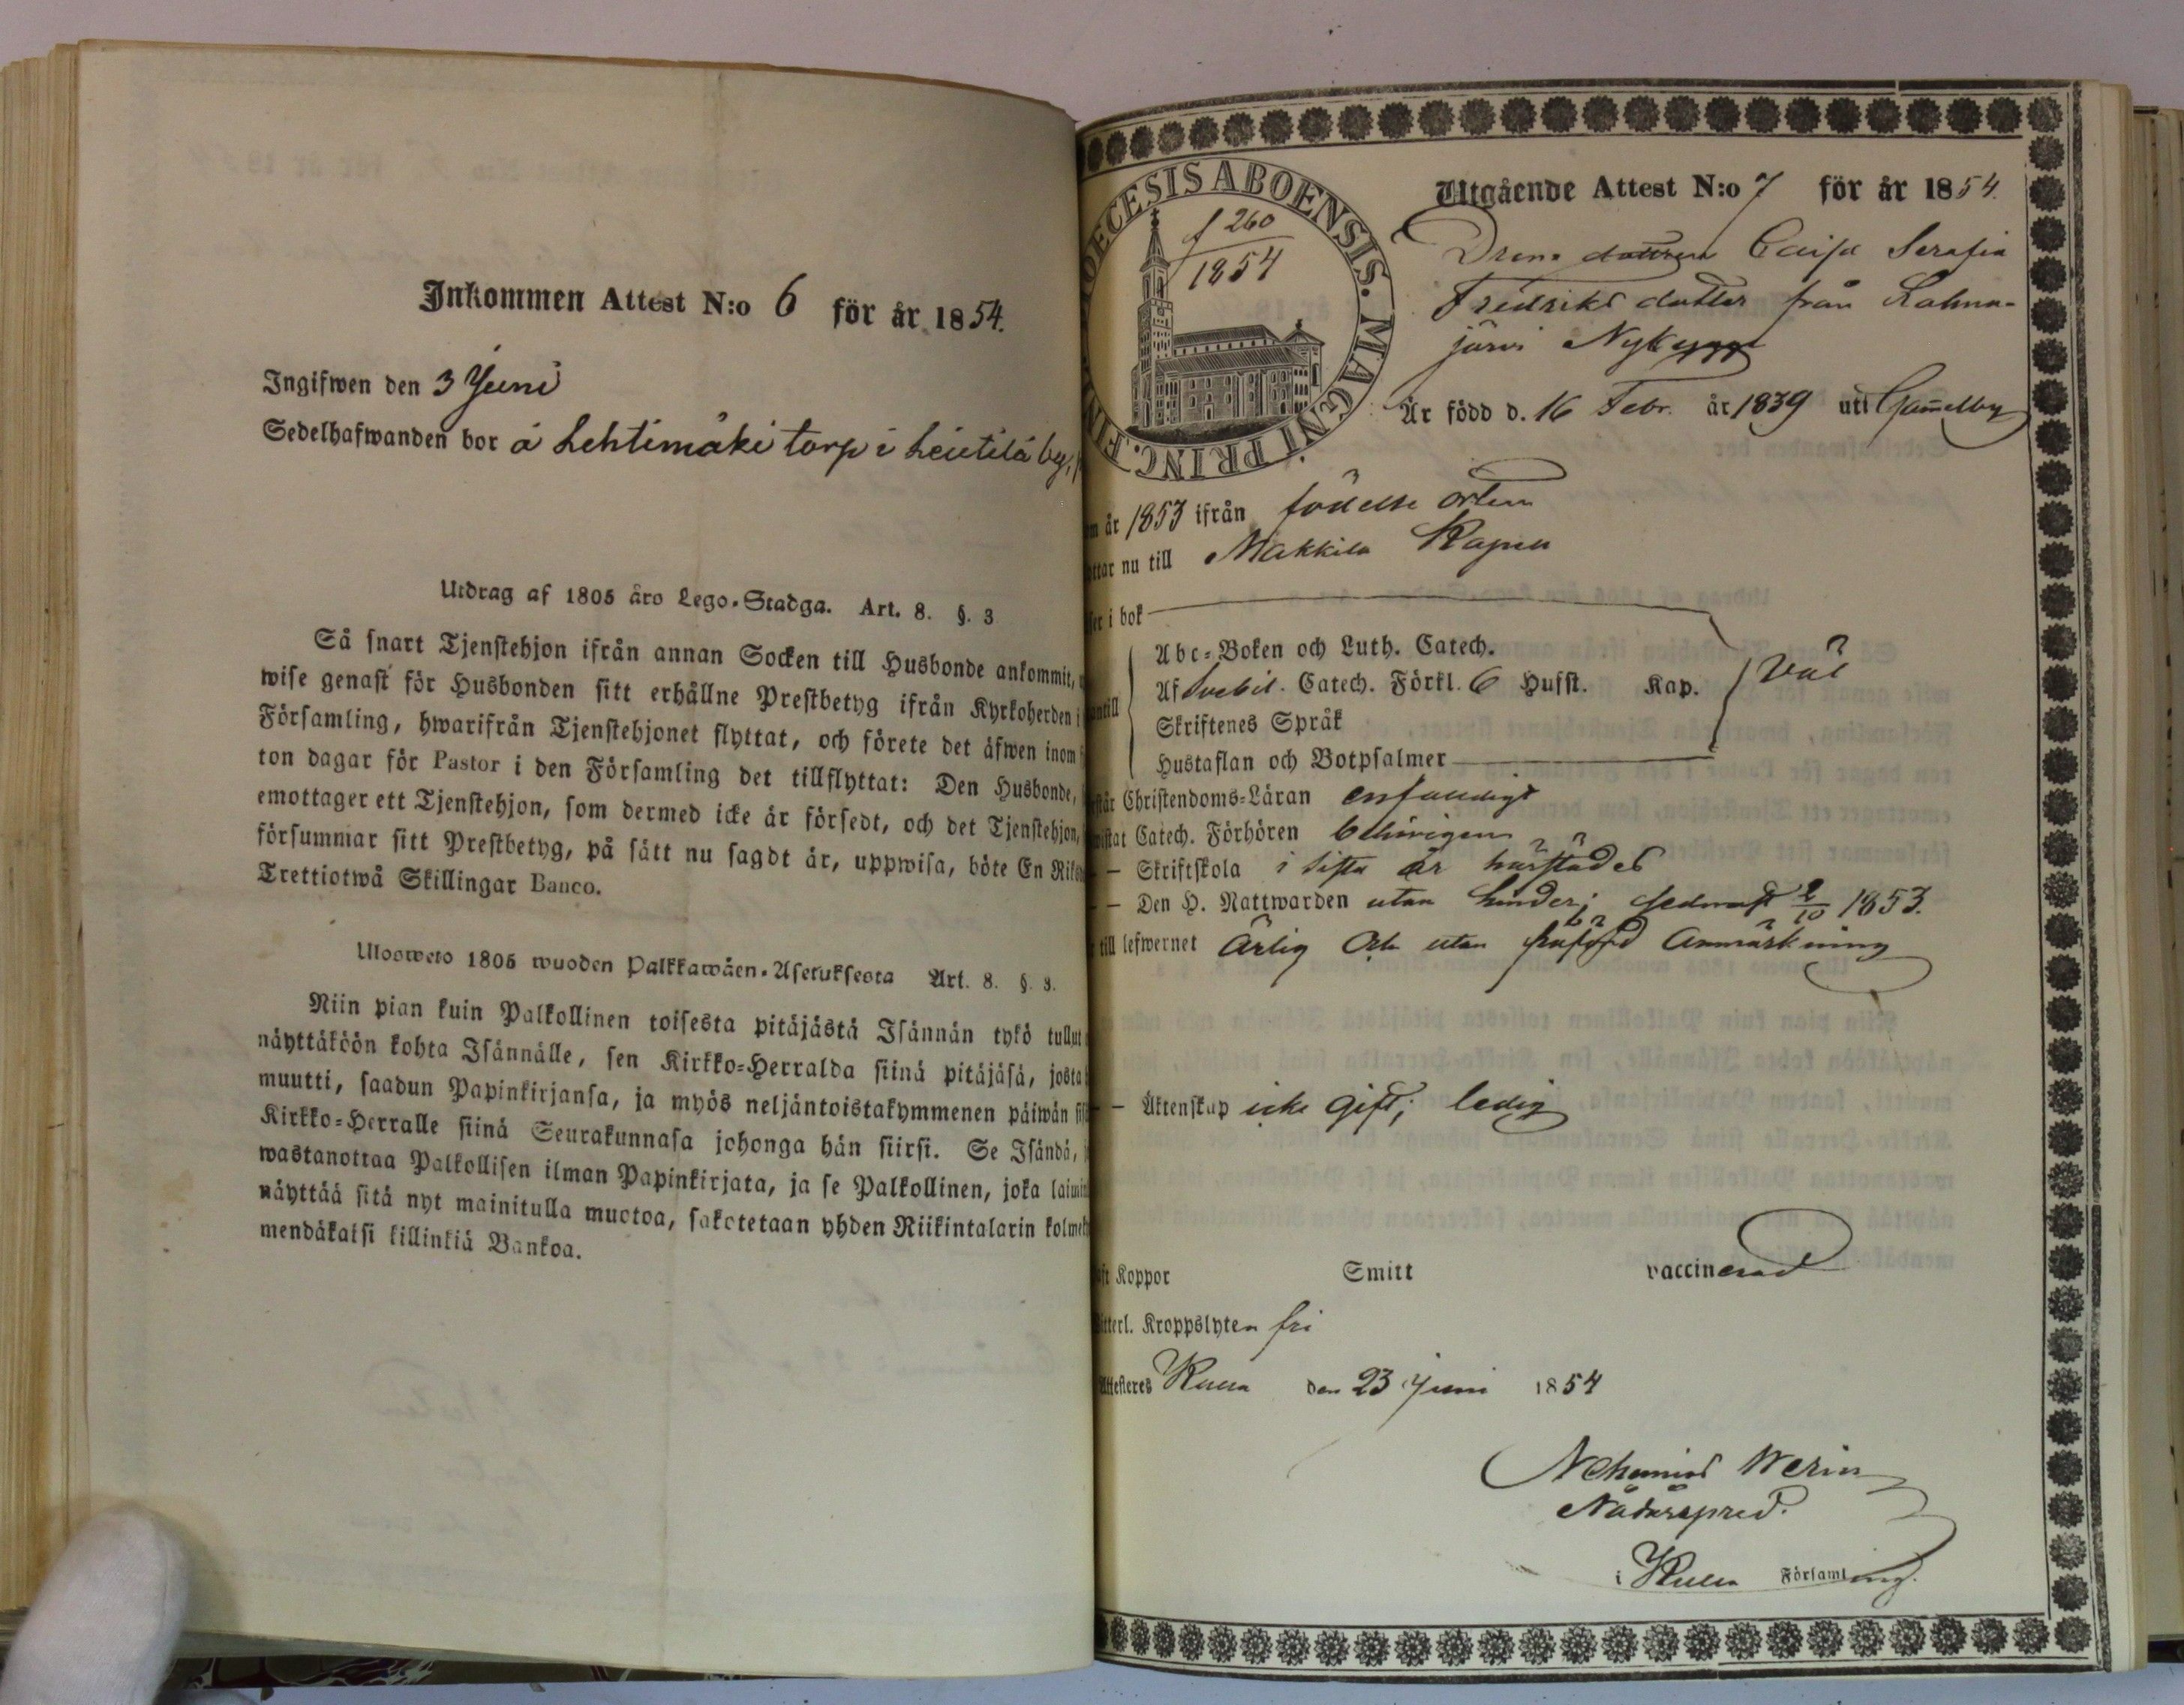 Inkommen Attest N:o 6 för år 1854.
Ingifwen den 3 Juni
Sedelhafwanden bor å Lehtimäki torp i Leutilä by,
Utdrag af 1805 års Lego-Stadga. Art. 8. §. 3
Så snart Tjenstehjon ifrån annan Socken till Husbonde ankommit,
wise genast för Husbonden sitt erhållne Prestbetyg ifrån Kyrkoherden i
Församling, hwarifrån Tjenstehjonet flyttat, och förete det äfwen inom
ton dagar för Pastor i den Församling det tillflyttat: Den Husbonde,
emottager ett Tjenstehjon, som dermed icke är försedt, och det Tjenstehjon,
försummar sitt Prestbetyg, på sätt nu sagdt är, uppwisa, böte En Riks
Trettiotwå Skillingar Banco.
Ulosweto 1805 wuoden Palkkawäen-Asetuksesta Art. 8. §. 3.
Niin pian kuin Palkollinen toisesta pitäjästä Isännän tykö tullut
näyttäköön kohta Isännälle, sen Kirkko-Herralda siinä pitäjäsä, josta
muutti, saadun Papinkirjansa, ja myös neljäntoistakymmenen päiwän
Kirkko-Herralle siinä Seurakunnasa johonga hän siirsi. Se Isändä,
wastanottaa Palkollisen ilman Papinkirjata, ja se Palkollinen, joka laimin
näyttää sitä nyt mainitulla muotoa, sakotetaan yhden Riikintalarin kolmeh
mendäkaisi killinkiä Bankoa.
DIOECESIS ABOENSIS. MAGNI PRINC. FIN
f 260
1854
Utgående Attest N:o 7 för år 1854.
Dreng dottren Caisa Serafia
Fredriks dotter från Lahna-
järvi Nykygg
Är född d. 16 Febr. år 1839 uti Gam̄elby
m år 1853 ifrån födelse orten
ttar nu till Makkila Kapell
ser i bok
Abc-Boken och Luth. Catech.
Af Svebil. Catech. Förkl. 6 Hufst. Kap. Väl
antill
Skriftenes Språk
Hustaflan och Botpsalmer
står Christendoms-Läran enfaldigt
wistat Catech. Förhören behörigen
— Skriftskola i sista år härstädes
— Den H. Nattwarden utan hinder; sednast 2/10 1853.
till lefwernet Ärlig och utan påförd Anmärkning
— Äktenskap icke gift; ledig
aft Koppor Smitt vaccinerad
itterl. Kroppslyten fri
Attesteres Kulla den 23 Juni 1854
Nehemias Werin
Nådårspred.
i Kulla Församling.